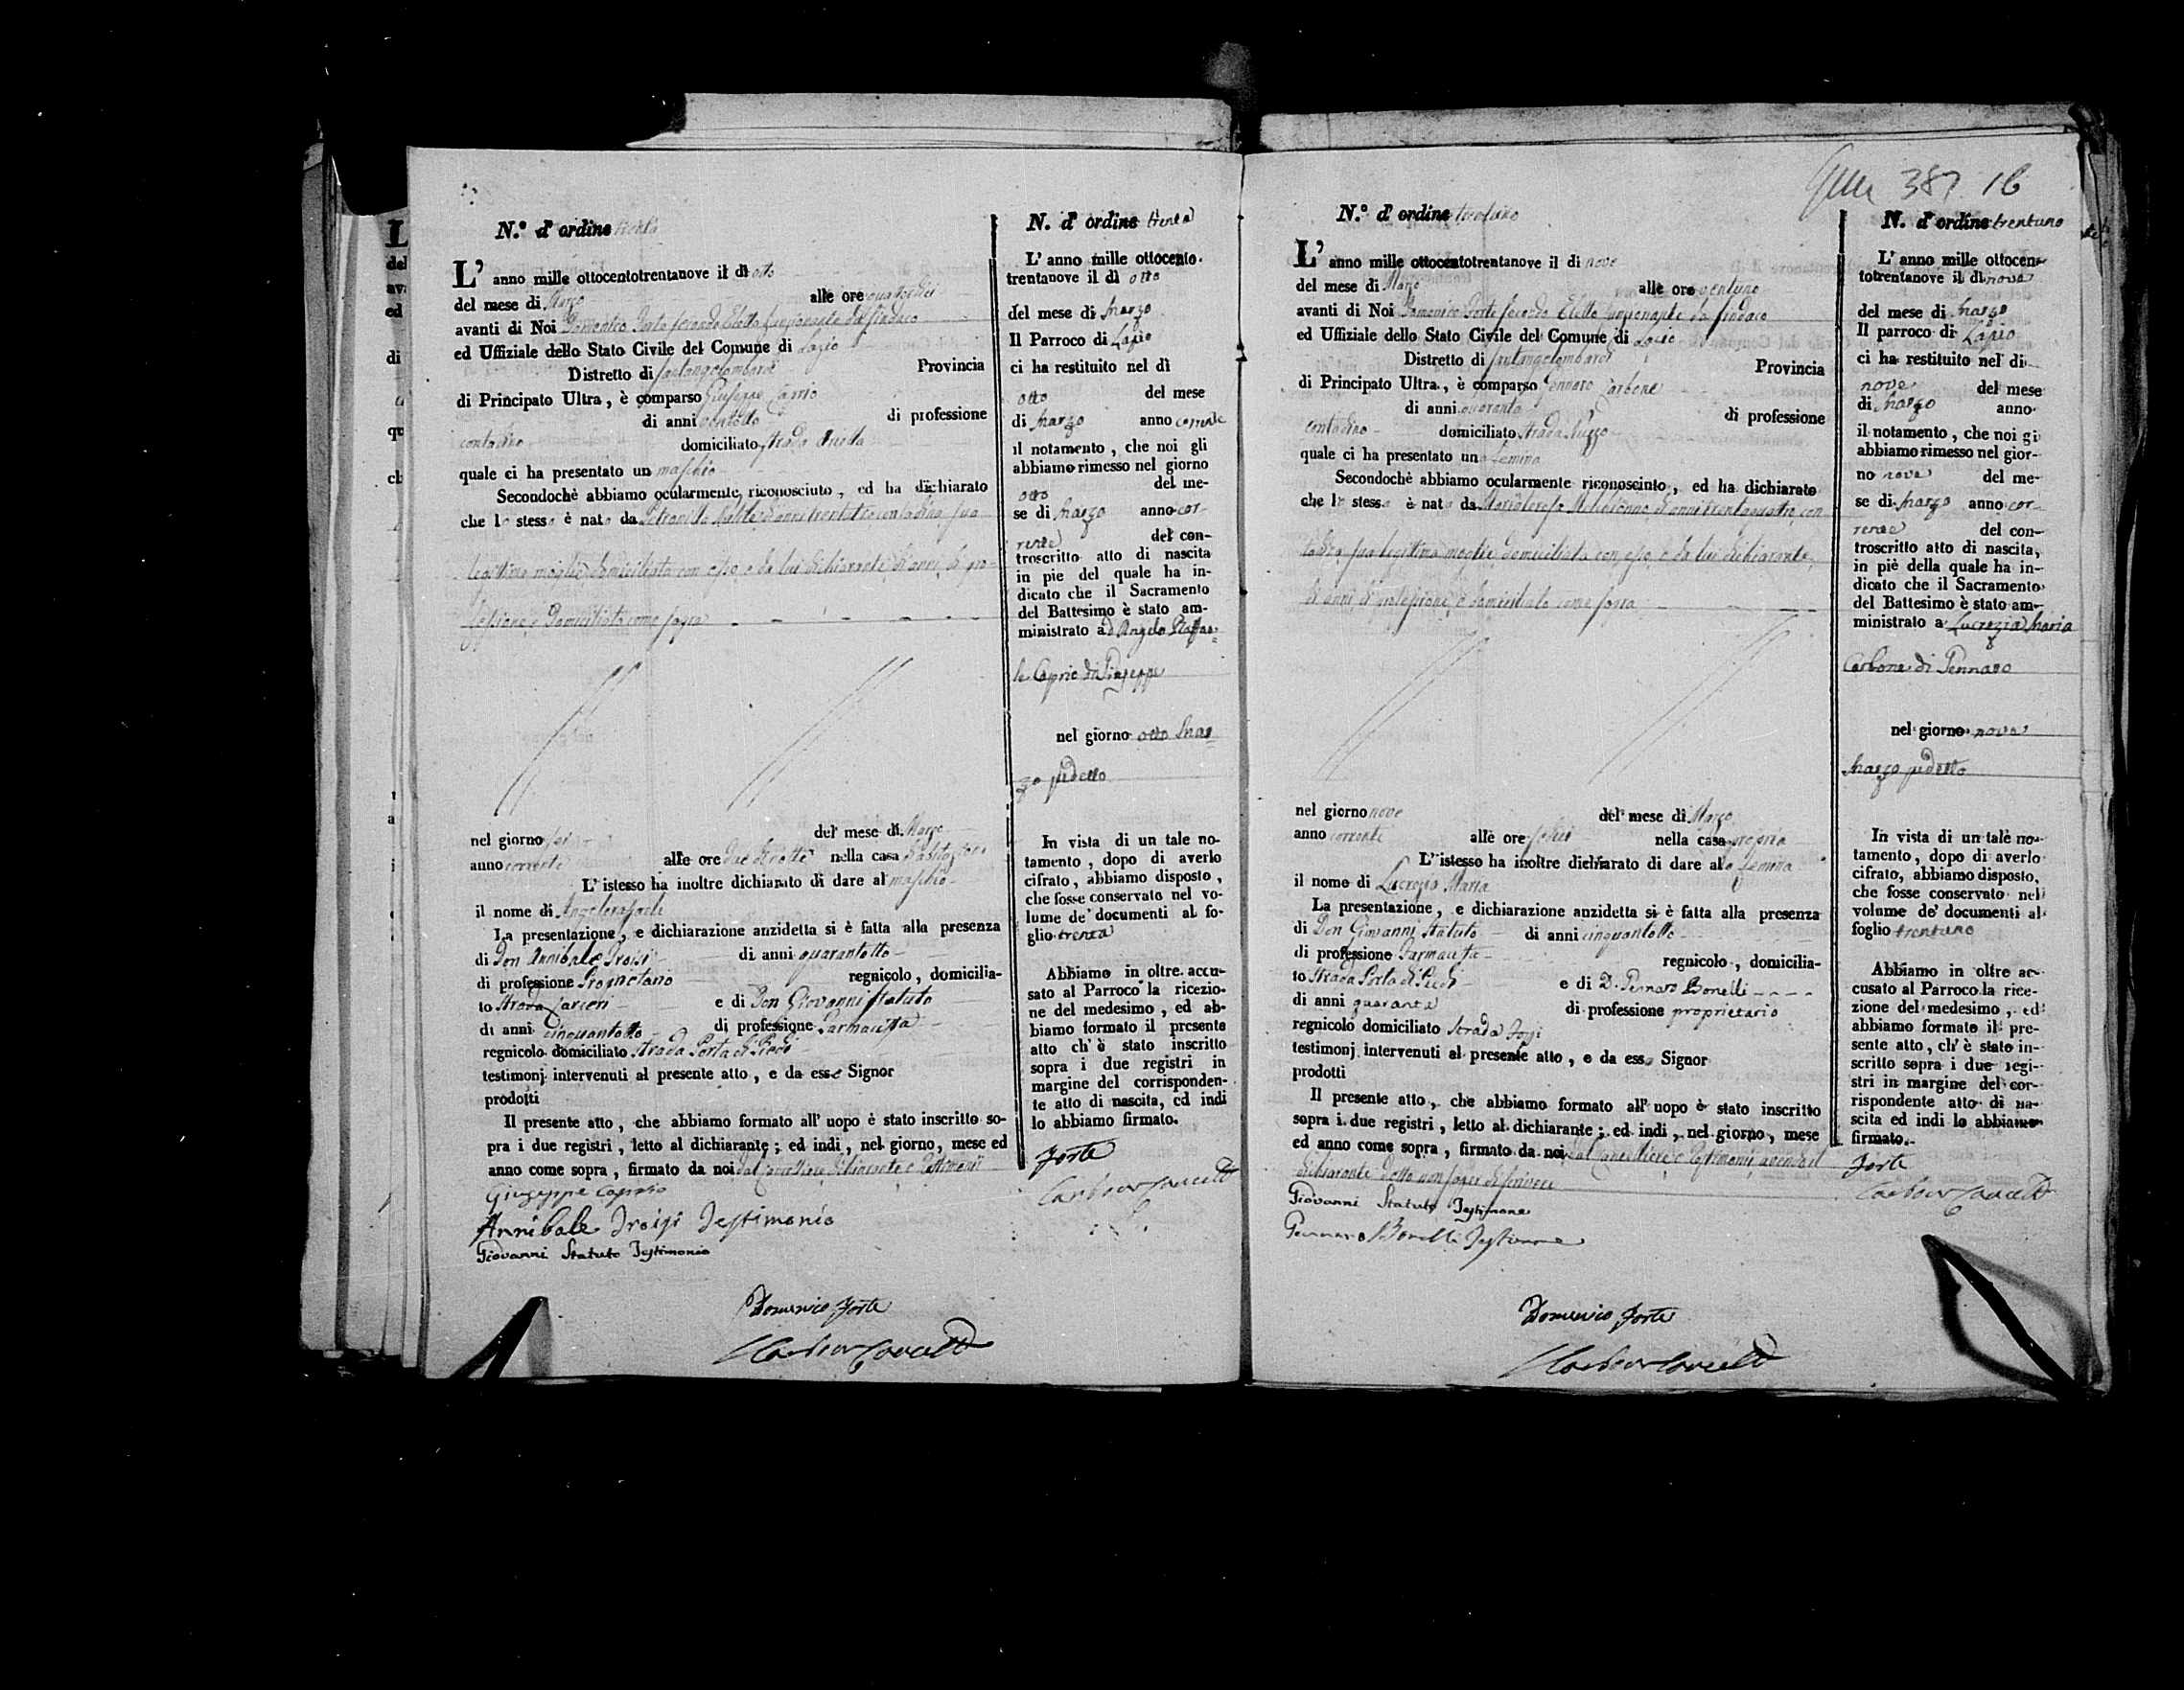 N.º d' ordine trenta
L' anno mille ottocentotrentanove il dì otto
del mese di Marzo alle ore quattordici
avanti di Noi Domenico Forte secondo Eletto funzionante da Sindaco
ed Uffiziale dello Stato Civile del Comune di Lapio
Distretto di Santangelombardi Provincia
di Principato Ultra, è comparso Giuseppe
di anni ventotto di professione
contadino domiciliato strada
quale ci ha presentato un maschio
Secondochè abbiamo ocularmente riconosciuto, ed ha dichiarato
che lo stesso è nato da di anni trentatre contadina sua
legittima moglie domiciliata con esso e da lui dichiarante di anni, di pro-
fessione e domiciliato come sopra
nel giorno sei del mese di Marzo
anno corrente alle ore due di notte nella casa
L' istesso ha inoltre dichiarato di dare al maschio
il nome di Angeloraffaele
La presentazione, e dichiarazione anzidetta si è fatta alla presenza
di Don Annibale Troisi di anni quarantotto
di professione Proprietario regnicolo, domicilia-
to Strada Carceri e di Don Giovanni Statuto
di anni cinquantotto di professione Farmacista
regnicolo domiciliato strada Porta di Piedi
testimonj intervenuti al presente atto, e da esse Signor
prodotti
Il presente atto, che abbiamo formato all' uopo è stato inscritto so-
pra i due registri, letto al dichiarante; ed indi, nel giorno, mese ed
anno come sopra, firmato da noi dal Cancelliere dichiarante e Testimonii
Giuseppe
Annibale Troisi Testimonio
Giovanni Statuto Testimonio
Domenico Forte
N. d' ordine trenta
L' anno mille ottocento-
trentanove il dì otto
del mese di Marzo
Il Parroco di Lapio
ci ha restituito nel dì
otto del mese
di Marzo anno corrente
il notamento, che noi gli
abbiamo rimesso nel giorno
otto del me-
se di Marzo anno cor-
rente del con-
troscritto atto di nascita
in piè del quale ha in-
dicato che il Sacramento
del Battesimo è stato am-
ministrato ad Angelo Raffae-
le di Giuseppe
nel giorno otto Mar-
zo pedetto
In vista di un tale no-
tamento, dopo di averlo
cifrato, abbiamo disposto,
che fosse conservato nel vo-
lume de' documenti al fo-
glio trenta
Abbiamo in oltre accu-
sato al Parroco la ricezio-
ne del medesimo, ed ab-
biamo formato il presente
atto ch' è stato inscritto
sopra i due registri in
margine del corrisponden-
te atto di nascita, ed indi
lo abbiamo firmato.
Forte
387 16
N.º d' ordine trentuno
L' anno mille ottocentotrentanove il dì nove
del mese di Marzo alle ore ventuno
avanti di Noi Domenico Forte secondo Eletto funzionante da Sindaco
ed Uffiziale dello Stato Civile del Comune di Lapio
Distretto di Santangelombardi Provincia
di Principato Ultra, è comparso Gennaro Carbone
di anni quaranta di professione
contadino domiciliato strada
quale ci ha presentato una femina
Secondochè abbiamo ocularmente riconosciuto, ed ha dichiarato
che la stessa è nata da Mariateresa di anni trentaquattro con-
tadina sua legittima moglie domiciliata con esso, e da lui dichiarante,
di anni di professione, e domiciliato come sopra
nel giorno nove del mese di Marzo
anno corrente alle ore sedici nella casa propria
L' istesso ha inoltre dichiarato di dare alla femina
il nome di Lucrezia Maria
La presentazione, e dichiarazione anzidetta si è fatta alla presenza
di Don Giovanni Statuto di anni cinquantotto
di professione Farmacista regnicolo, domicilia-
to Strada Porta di Piedi e di D. Gennaro Bonelli
di anni quaranta di professione proprietario
regnicolo domiciliato Strada
testimonj intervenuti al presente atto, e da esso Signor
prodotti
Il presente atto, che abbiamo formato all' uopo è stato inscritto
sopra i due registri, letto al dichiarante; ed indi, nel giorno, mese
ed anno come sopra, firmato da noi dal Cancelliere e Testimonii avendo il
dichiarante detto non saper di scrivere
Giovanni Statuto Testimone
Gennaro Bonelli Testimone
Domenico Forte
N. d' ordine trentuno
L' anno mille ottocen-
totrentanove il dì nove
del mese di Marzo
Il parroco di Lapio
ci ha restituito nel di
nove del mese
di Marzo anno
il notamento, che noi gi
abbiamo rimesso nel gior-
no nove del me-
se di Marzo anno cor-
rente del con-
troscritto atto di nascita,
in piè della quale ha in-
dicato che il Sacramento
del Battesimo è stato am-
ministrato a Lucrezia Maria
Carbone di Gennaro
nel giorno nove
Marzo pedetto
In vista di un tale no-
tamento, dopo di averlo
cifrato, abbiamo disposto,
che fosse conservato nel
volume de' documenti al
foglio trentuno
Abbiamo in oltre ac-
cusato al Parroco la rice-
zione del medesimo, ed
abbiamo formato il pre-
sente atto, ch' è stato in-
scritto sopra i due regi-
stri in margine del cor-
rispondente atto di na-
scita ed indi lo abbiamo
firmato.
Forte